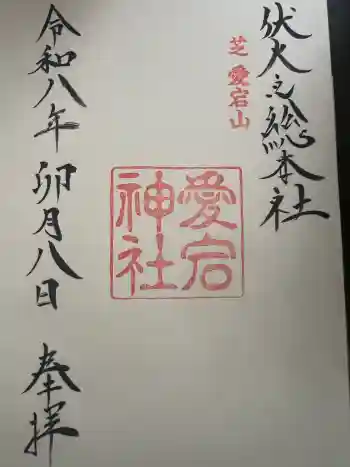 伏火之総本社
芝 愛宕山
愛宕
神社
令和八年 卯月八日 奉拝